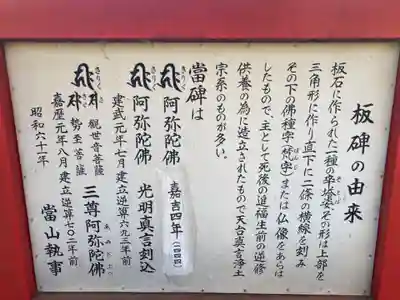 板碑の由来
板石に作られた一種の卒塔婆その形は上部を
三角形に作り直下に二条の横線を刻み
その下の佛種字(梵字)または仏像をあらは
したもので、主として死後の追福生前の逆修
供養の為に造立されたもので天台真言浄土
宗系のものが多い。
當碑は
きりーく
阿弥陀佛 嘉吉四年(一四四四)
きりーく
阿弥陀佛 光明真言刻込
建武元年七月建立逆算六九三年前
観世音菩薩
勢至菩薩 三尊阿弥陀佛
嘉歴元年八月建立逆算七〇二年前
昭和六十一年 當山執事